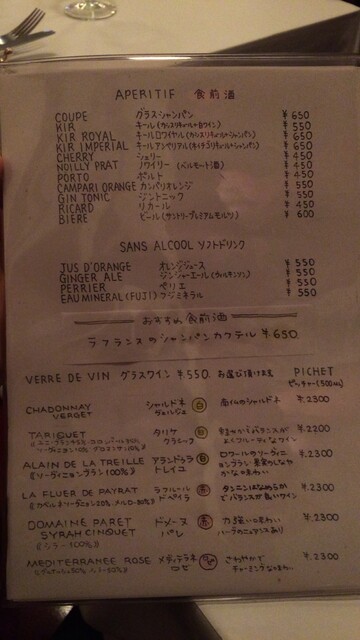 APERITIF 食前酒
COUPE グラスシャンパン ¥650
KIR キール(カシスリキュール+白ワイン) ¥550
KIR ROYAL キールロワイヤル(カシスリキュール+シャンパン) ¥650
KIR IMPERIAL キールアンペリアル(キイチゴリキュール+シャンパン) ¥650
CHERRY シェリー ¥450
NOILLY PRAT ノワイリー (ベルモート酒) ¥450
PORTO ポルト ¥450
CAMPARI ORANGE カンパリオレンジ ¥550
GIN TONIC ジントニック ¥550
RICARD リカール ¥450
BIERE ビール(サントリープレミアムモルツ) ¥600
SANS ALCOOL ソフトドリンク
JUS D'ORANGE オレンジジュース ¥550
GINGER ALE ジンジャーエール(ウィルキンソン) ¥550
PERRIER ペリエ ¥550
EAU MINERAL (FUJI) フジミネラル ¥550
おすすめ 食前酒
ラフランスのシャンパンカクテル ¥650
VERRE DE VIN グラスワイン ¥550 お選び頂けます PICHET
ピッチャー(500ml)
CHADONNAY シャルドネ 白 南仏のシャルドネ ¥2300
VERGET ヴェルジェ
TARIQUET タリケ 白 バランスが ¥2200
クラシック よくフルーティなワイン
ALAIN DE LA TREILLE アランドゥラ 白 ロワールのソーヴィニ ¥2300
(ソーヴィニョンブラン 100%) トレイユ ョンブラン
LA FLUER DE PAYRAT ラフルール 赤 タンニンはなめらか ¥2300
ドペイラ でバランスが良いワイン
DOMAINE PARET ドメーヌ 赤 力強い味わい ¥2300
SYRAH CINQUET パレ ハーブのニュアンスあり
(シラー100%)
MEDITERRANEE ROSE メディテラネ さわやかで ¥2300
ロゼ チャーミングな味わい